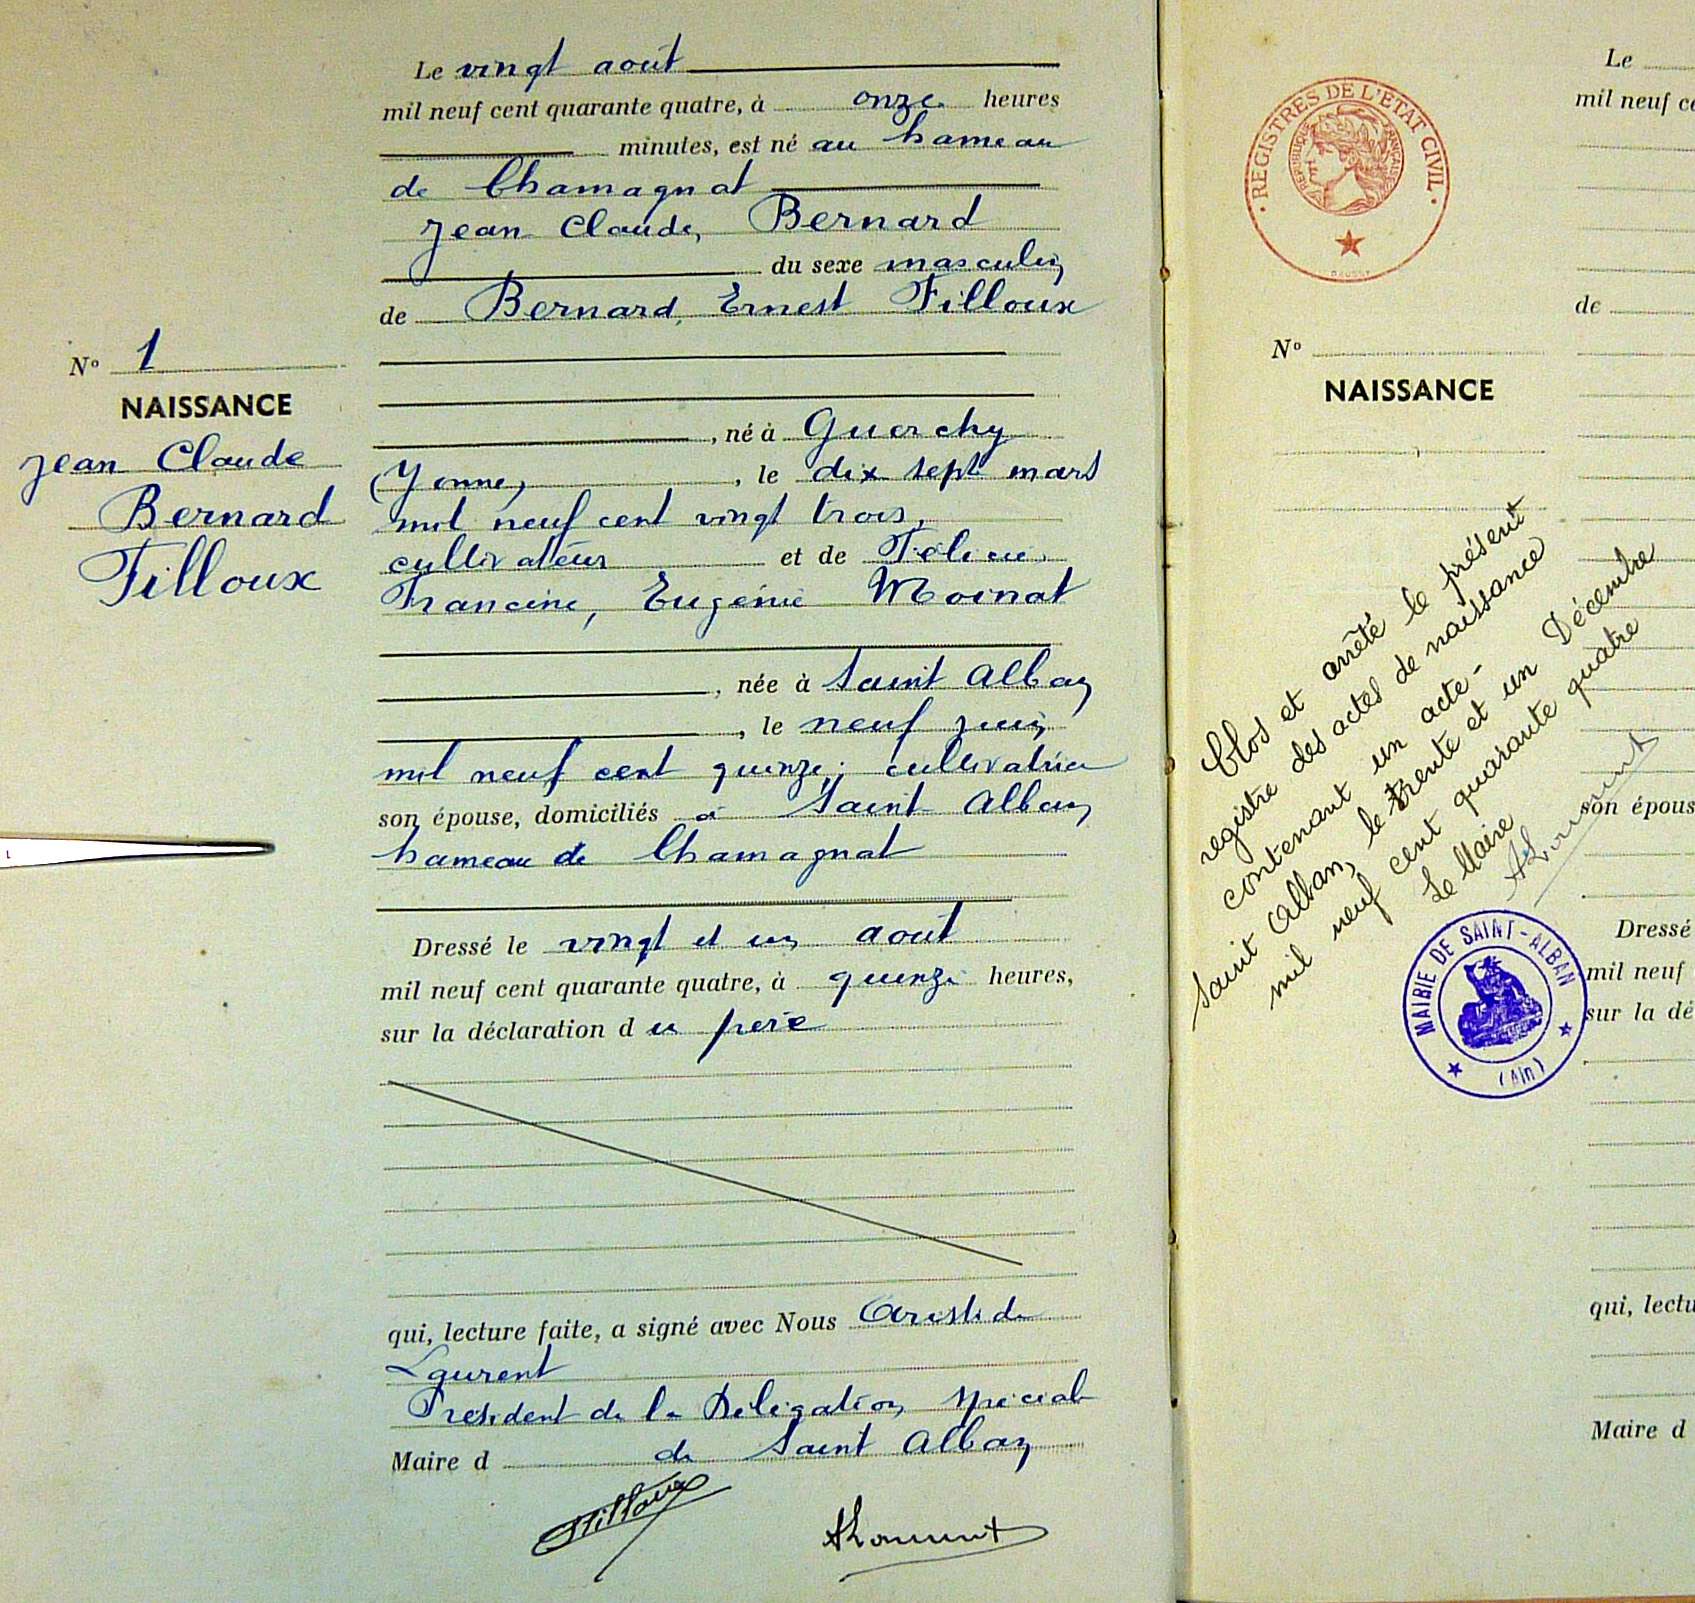 Le vingt août
mil neuf cent quarante quatre, à onze heures
minutes, est né au hameau
de Chamagnat
Jean Claude, Bernard
du sexe masculin
de Bernard, Ernest Filloux
, né à Guerchy
(Yonne) , le dix sept mars
mil neuf cent vingt trois,
cultivateur et de Félicie,
Francine, Eugénie Moinat
, née à Saint Alban
, le neuf juin
mil neuf cent quinze, cultivatrice
son épouse, domiciliés à Saint Alban
hameau de Chamagnat
Dressé le vingt et un août
mil neuf cent quarante quatre, à quinze heures,
sur la déclaration du père
qui, lecture faite, a signé avec Nous Aristide
Laurent
Président de la Délégation Spéciale
Maire d de Saint Alban
Filloux
ALaurent
No 1
NAISSANCE
Jean Claude
Bernard
Filloux
REGISTRES DE L'ETAT CIVIL
REPUBLIQUE FRANÇAISE
No
NAISSANCE
Clos et arrêté le présent
registre des actes de naissance
contenant un acte-
Saint Alban, le trente et un Décembre
mil neuf cent quarante quatre
Le Maire
ALaurent
MAIRIE DE SAINT-ALBAN
(Ain)
Le
mil neuf ce
de
son épous
Dressé
mil neuf
sur la dé
qui, lectu
Maire d